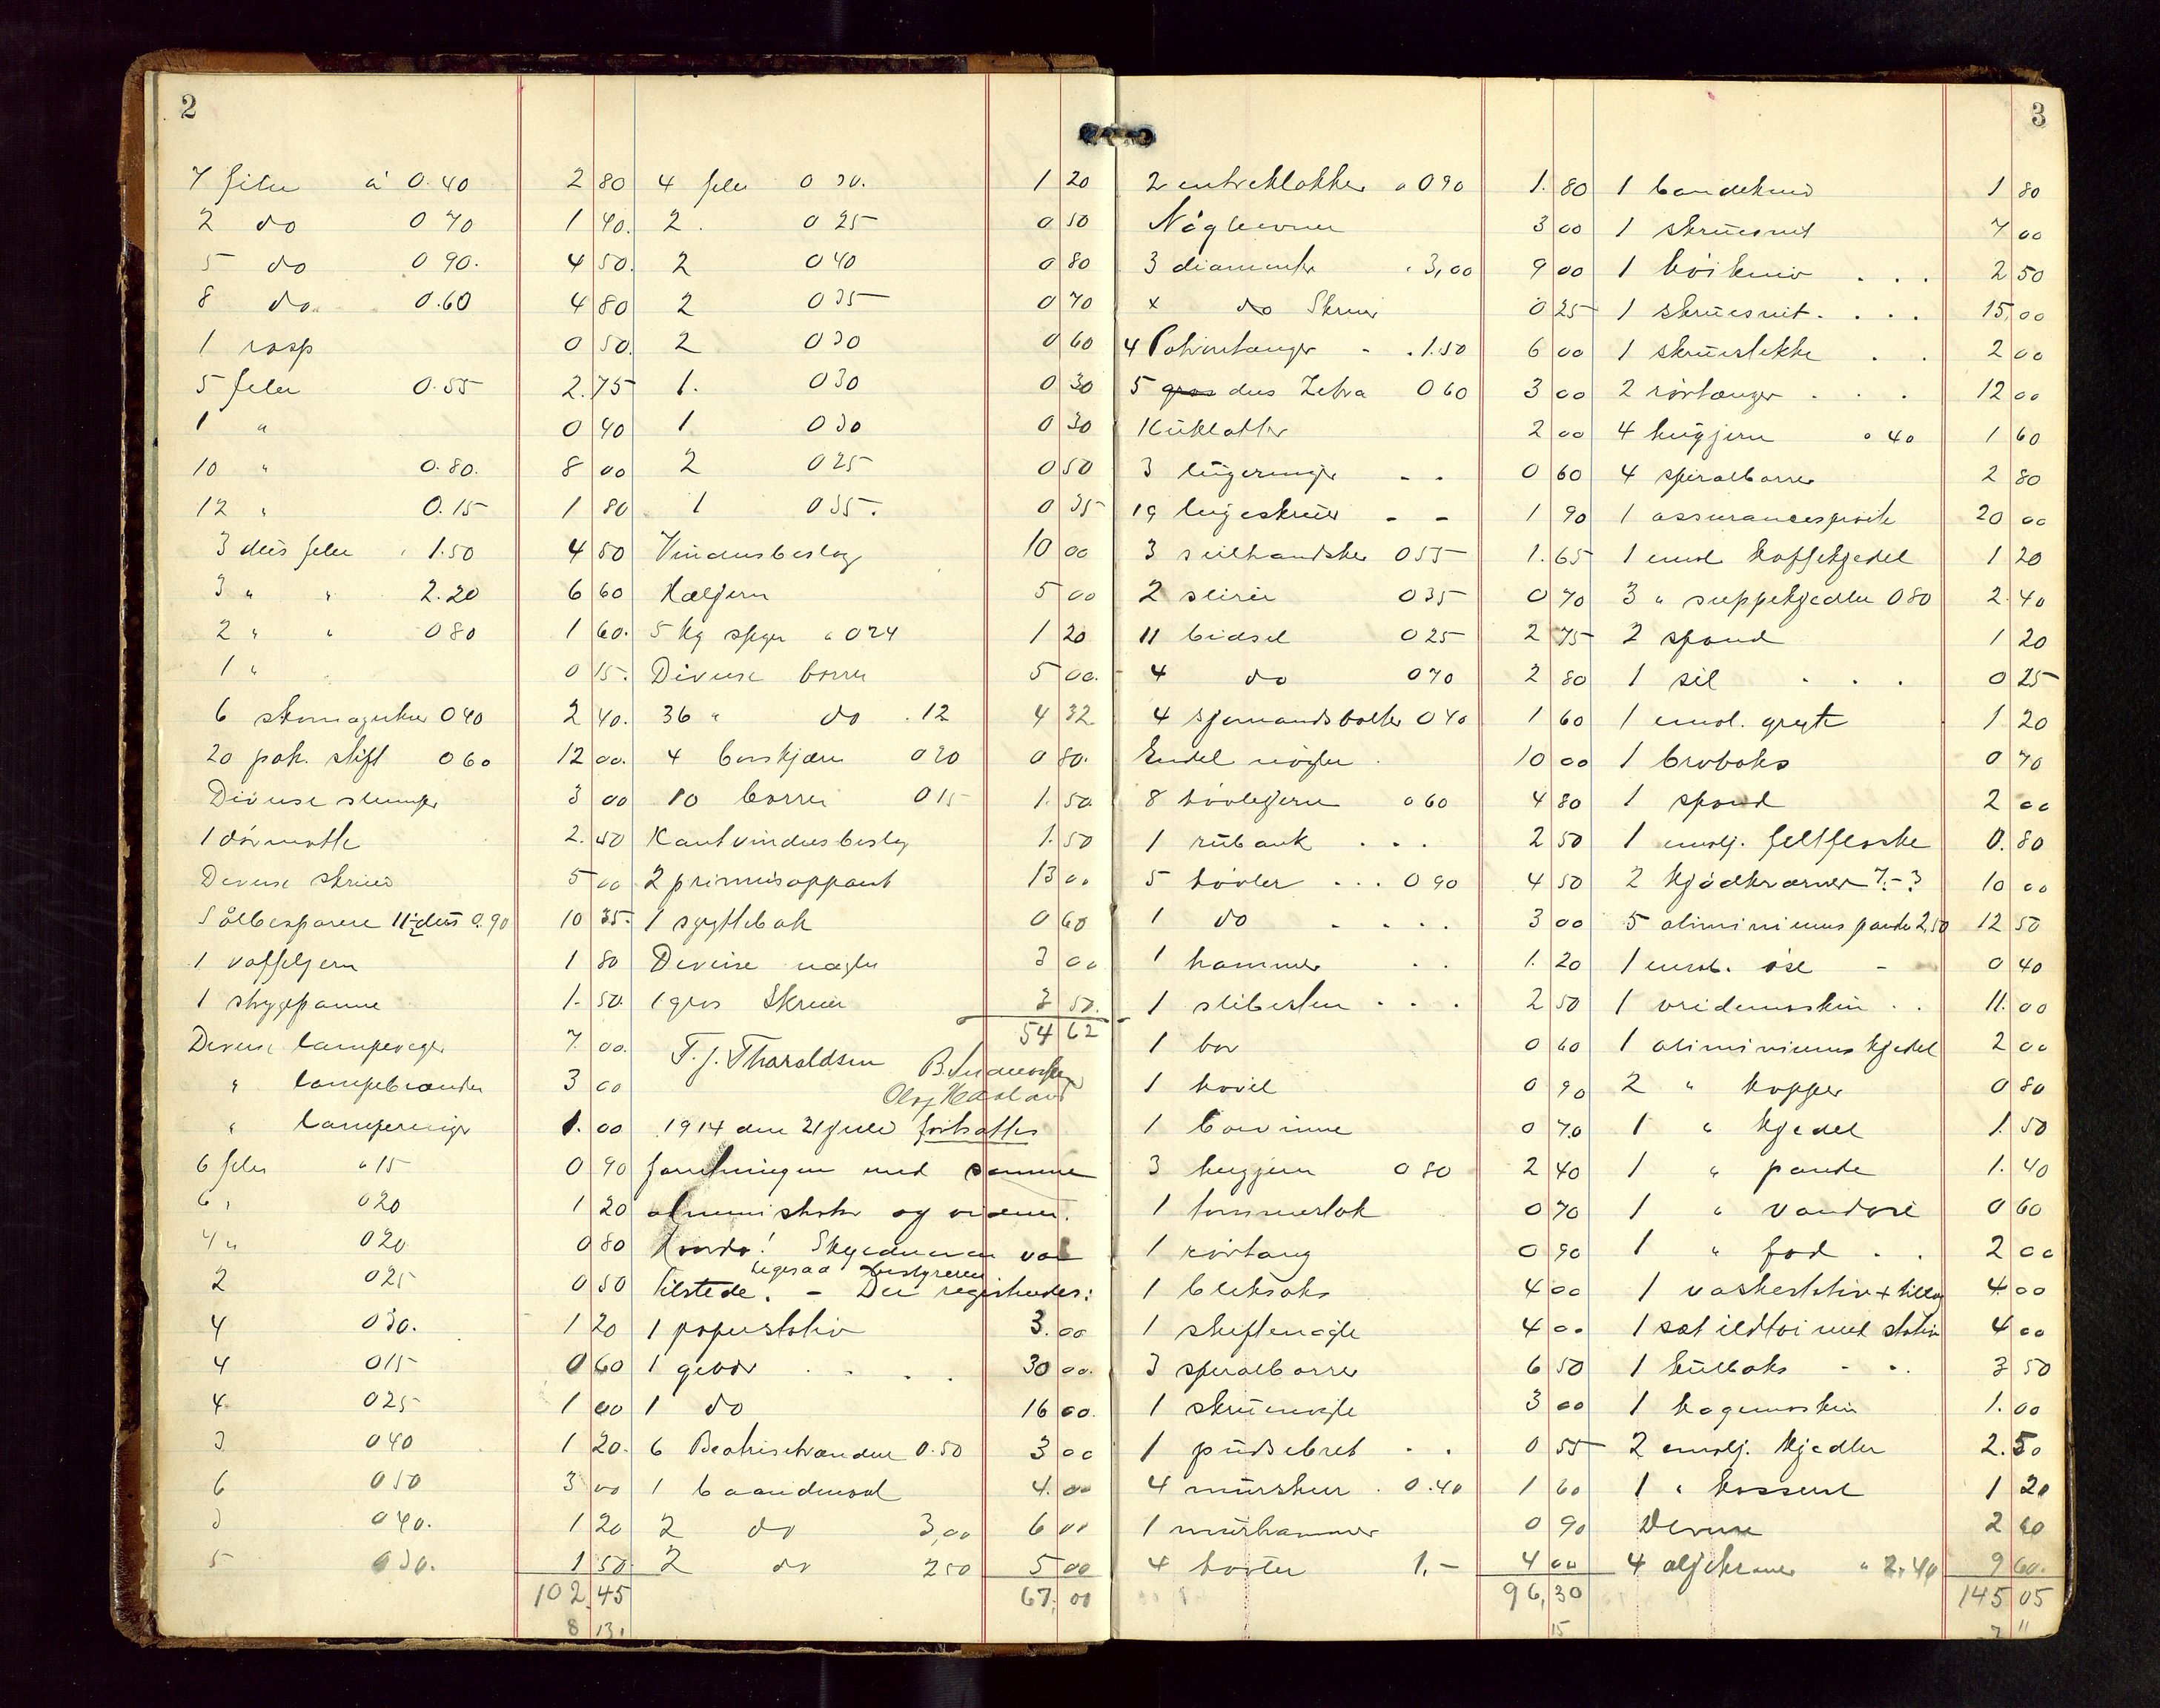 2
7 filer à 0.40 2 80
2 do 0 70 1 40.
5 do 0 90. 4 50.
8 do. 0.60 4 80
1 rasp 0 50.
5 filer 0.55 2.75
1 " 0 40
10 " 0.80. 8 00
12 " 0.15 1 80
3 dus filer 1.50 4 50
3 " " 2.20 6 60
2 " " 0 80 1 60.
1 " 0 15.
6 0 40 2 40.
20 pak. stift 0 60 12 00.
Diverse 3 00
1 dörmatte 2.50
Diverse skruer 5 00
Sålbesparere 11½ dus 0.90 10 35.
1 vaffeljern 1 80
1 stygpanne 1.50.
Diverse lampeveger 7.00.
" lampebrænder 3 00
" 1.00
6 filer " 15 0 90
6 " 0 20 1 20
4 " 0 20 0 80
2 0 25 0 50
4 0 30. 1 20
4 0 15 0 60
4 0 25 1 00
3 0 40 1 20.
6 0 50 3 00
3 0 40. 1 20
5 0 30. 1 50.
102.45
8 13.
4 filer 0 30. 1 20
2. 0 25 0 50
2 0 40 0 80
2 0 35 0 70
2 0 30 0 60
1. 0 30 0 30
1 0 30 0 30
2 0 25 0 50
1 0 35. 0 35
Vinduesbeslag 10 00
Hæljern 5 00
5 kg spiger " 0 24 1 20
Diverse borrer 5 00.
36 " do .12 4 32
4 0 20 0 80.
10 borrer 0 15 1.50
Kantvinduesbeslag 1.50
2 primusapparat 13 00
1 0 60
Diverse nagler 3 00
1 gros Skruer 3 50.
54 62
T. J. Tharaldsen
Olaf Haaland
1914 den 21 juli fortsattes
forretningen med samme
administrator og vidner.
ligesaa bestyreren
tilstede. - Der registreredes:
1 papirstativ 3.00
1 gevær 30 00.
1 do 16 00.
6 0.50 3 00
1 4.00
2 do 3,00 6 00
2 do 2 50 5 00
67.00
3
2 entreklokker à 0 90 1.80
3 00
3 diamanter " 3,00 9 00
x do Skruer 0 25
4 1.50 6 00
5 dus Zebra 0 60 3 00
Kuklokker 2 00
3 0 60
19 1 90
3 seilhandsker 0 55 1.65
2 0 35 0 70
11 bidsel 0 25 2 75
4 do 0 70 2 80
4 0 40 1 60
Endel nögler 10 00
8 hövlejern 0 60 4 80
1 rubank 2 50
5 hövler 0 90 4 50
1 do 3 00
1 hammer 1.20
1 slibesten 2 50
1 bor 0 60
1 hövel 0 90
1 borvinne 0 70
3 huggjern 0 80 2 40
1 tommestok 0 70
1 rörtang 0 90
1 bliksaks 4 00
1 skiftenögle 4 00
3 spiralborrer 6 50
1 skruenögle 3 00
1 pudsebret 0 55
4 murskeer 0.40 1 60
1 murhammer 0 90
4 hövler 1,- 4 00
96,30
15
1 1 80
1 skruestik 7 00
1 2 50
1 skruestik 15,00
1 2 00
2 rörtænger 12 00
4 hugjern " 40 1 60
4 spiralborrer 2 80
1 20 00
1 emal. kaffekjedel 1 20
3 " suppekjedler 0 80 2.40
2 spand 1 20
1 sil 0 25
1 emal. gryte 1 20
1 bröboks 0 70
1 spand 2 00
1 emalj. feltflaske 0.80
2 kjödkværner 10 00
5 aliminiums pander 2,50 12 50
1 emal. öse 0 40
1 vridemaskin 11.00
1 aliminiums kjedel 2 00
2 " kopper 0 80
1 " kjedel 1.50
1 " pande 1.40
1 " vandöse 0 60
1 " fad 2 00
1 4 00
1 sæt ildtöi med stativ 4 00
1 kulboks 3 50
1 kagemaskin 1.00
2 emalj. kjedler 2.50
1 " 1 20
Diverse 2 60
4 oljekraner " 2,40 9 60.
145 05